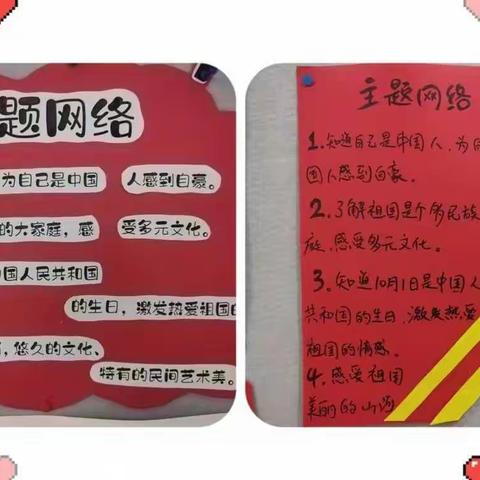 题网络
为自己是中国 人感到自豪。
的大家庭，感 受多元文化。
国人民共和国
的生日，激发热爱祖国的
，悠久的文化、
特有的民间艺术美。
主题网络
1.知道自己是中国人，为
国人感到自豪。
2.了解祖国是个多民族
庭，感受多元文化。
3.知道10月1日是中国人
共和国的生日，激发热爱
祖国的情感。
4.感受祖国
美丽的山河